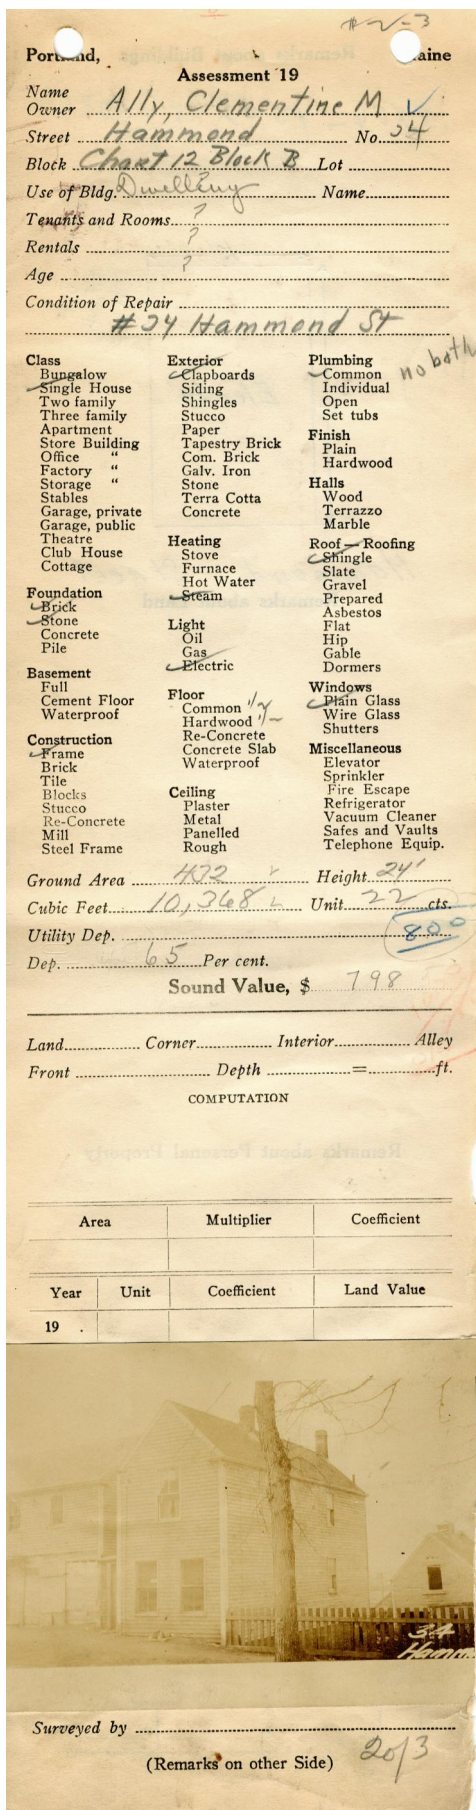 #2-3
Portland, Maine
Assessment 19
Name
Owner Ally, Clementine M ✓
Street Hammond No. 34
Block Chart 12 Block B Lot
Use of Bldg. Dwelling Name
Tenants and Rooms ?
Rentals ?
Age ?
Condition of Repair
#34 Hammond St
Class
Bungalow
Single House
Two family
Three family
Apartment
Store Building
Office "
Factory "
Storage "
Stables
Garage, private
Garage, public
Theatre
Club House
Cottage
Foundation
Brick
Stone
Concrete
Pile
Basement
Full
Cement Floor
Waterproof
Construction
Frame
Brick
Tile
Blocks
Stucco
Re-Concrete
Mill
Steel Frame
Exterior
Clapboards
Siding
Shingles
Stucco
Paper
Tapestry Brick
Com. Brick
Galv. Iron
Stone
Terra Cotta
Concrete
Heating
Stove
Furnace
Hot Water
Steam
Light
Oil
Gas
Electric
Floor
Common 1/2
Hardwood 1/2
Re-Concrete
Concrete Slab
Waterproof
Ceiling
Plaster
Metal
Panelled
Rough
Plumbing
Common no bath
Individual
Open
Set tubs
Finish
Plain
Hardwood
Halls
Wood
Terrazzo
Marble
Roof — Roofing
Shingle
Slate
Gravel
Prepared
Asbestos
Flat
Hip
Gable
Dormers
Windows
Plain Glass
Wire Glass
Shutters
Miscellaneous
Elevator
Sprinkler
Fire Escape
Refrigerator
Vacuum Cleaner
Safes and Vaults
Telephone Equip.
Ground Area 432 Height 24'
Cubic Feet 10,368 Unit 22 cts.
Utility Dep. 800
Dep. 65 Per cent.
Sound Value, $ 798
Land Corner Interior Alley
Front Depth = ft.
COMPUTATION
Area Multiplier Coefficient
Year Unit Coefficient Land Value
19 .
34
Hamm
Surveyed by
(Remarks on other Side) 2 of 3